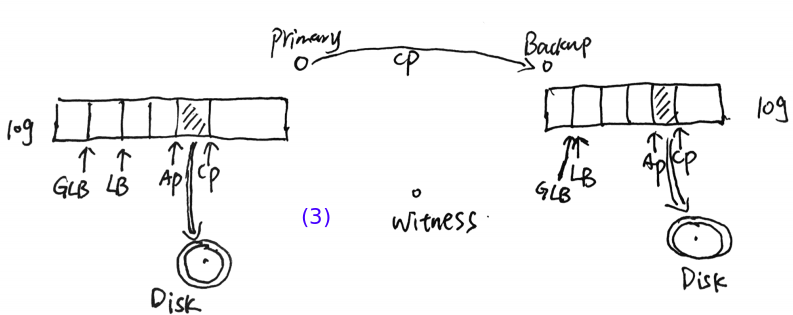 Primary
CP
Backup
log
GLB
LB
AP
CP
Disk
(3)
Witness.
log
GLB
LB
AP
CP
Disk